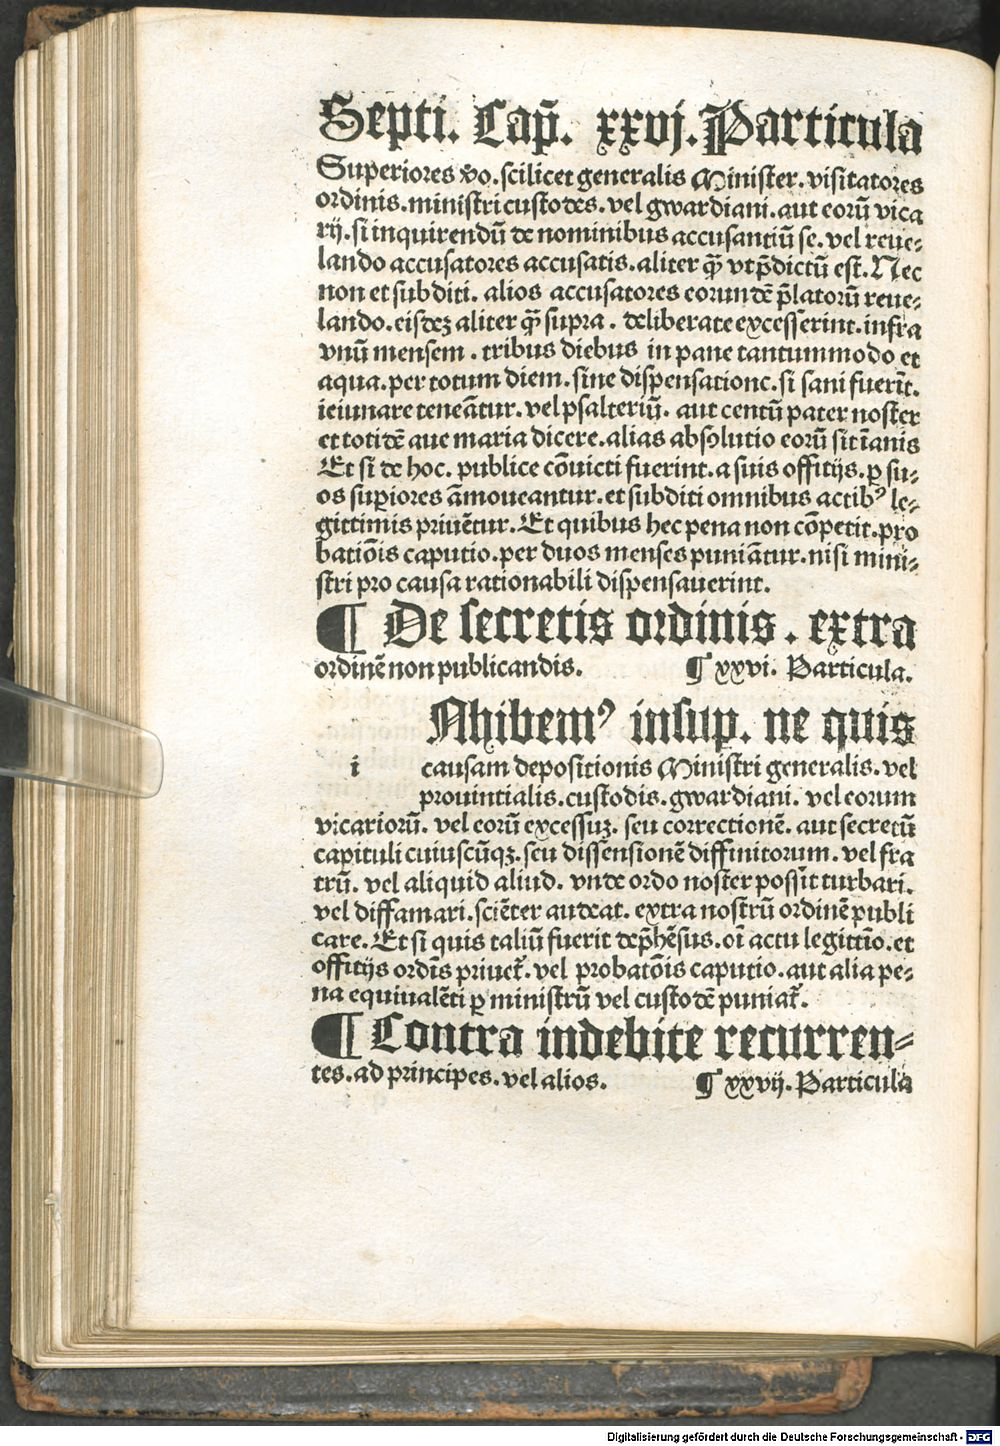 Septi. Cap̃. xxvj. Particula
Superiores ꝟo. scilicet generalis Minister. visitatores
ordinis. ministri custodes. vel gwardiani. aut eorũ vica
rij. si inquirendũ de nominibus accusantiũ se. vel reue⸗
lando accusatores accusatis. aliter q̃ꝫ vt p̃dictũ est. Nec
non et subditi. alios accusatores eorundẽ p̃latorũ reue⸗
lando. eisdeꝫ aliter q̃ꝫ supra. deliberate excesserint. infra
vnũ mensem. tribus diebus in pane tantummodo et
aqua. per totum diem. sine dispensatione. si sani fuerĩt.
ieiunare teneãtur. vel psalteriũ. aut centũ pater noster
et totidẽ aue maria dicere. alias absolutio eorũ sit ĩanis
Et si de hoc. publice cõuicti fuerint. a suis offitijs. ꝑ su⸗
os suꝑiores ãmoueantur. et subditi omnibus actibꝰ le⸗
gittimis priuẽtur. Et quibus hec pena non cõpetit. pro
batiõis caputio. per duos menses puniãtur. nisi mini⸗
stri pro causa rationabili dispensauerint.
¶ De secretis ordinis. extra
ordinẽ non publicandis. ¶ xxvi. Particula.
Nhibemꝰ insuꝑ. ne quis
i causam depositionis Ministri generalis. vel
prouintialis. custodis. gwardiani. vel eorum
vicariorũ. vel eorũ excessuꝫ. seu correctionẽ. aut secretũ
capituli cuiuscũqꝫ. seu dissensionẽ diffinitorum. vel fra
trũ. vel aliquid aliud. vnde ordo noster possit turbari.
vel diffamari. sciẽter audeat. extra nostrũ ordinẽ publi
care. Et si quis taliũ fuerit dep̃hẽsus. oĩ actu legittĩo. et
offitijs ordĩs priuet᷑. vel probatõis caputio. aut alia pe⸗
na equiualẽti ꝑ ministrũ vel custodẽ puniat᷑.
¶ Contra indebite recurren⸗
tes. ad principes. vel alios. ¶ xxvij. Particula
Digitalisierung gefördert durch die Deutsche Forschungsgemeinschaft - DFG